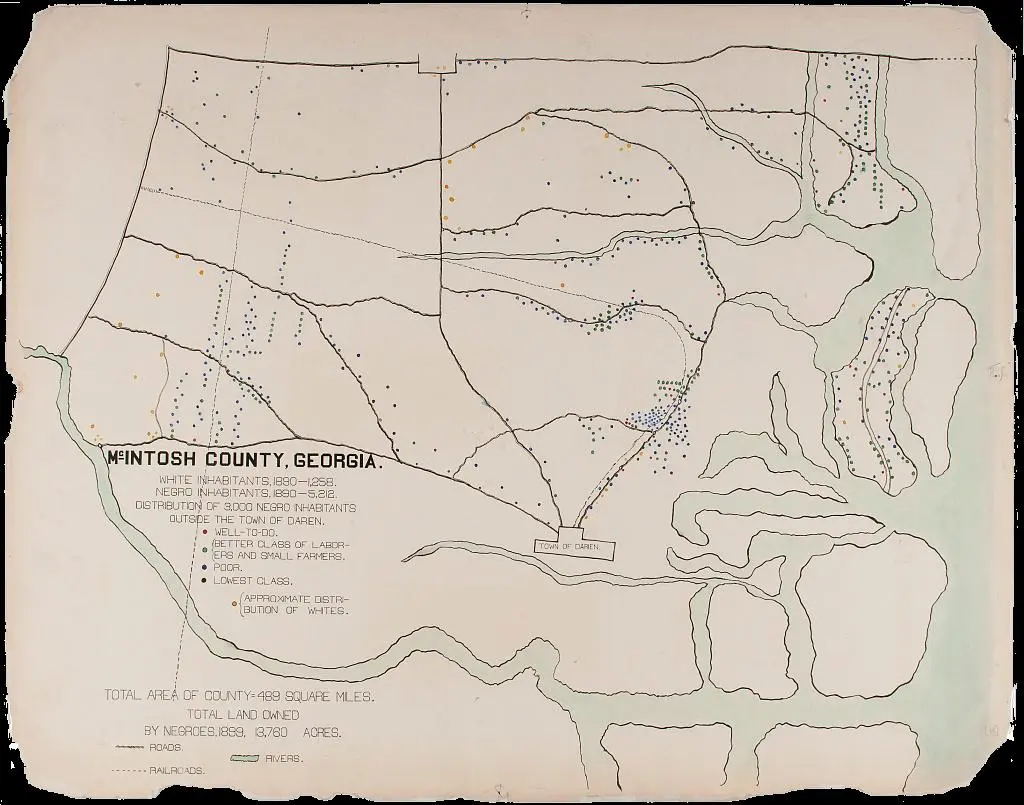 McINTOSH COUNTY, GEORGIA.
WHITE INHABITANTS, 1890—1,258.
NEGRO INHABITANTS, 1890—5,212.
DISTRIBUTION OF 3,000 NEGRO INHABITANTS
OUTSIDE THE TOWN OF DARIEN.
WELL-TO-DO.
BETTER CLASS OF LABOR-
ERS AND SMALL FARMERS.
POOR.
LOWEST CLASS.
APPROXIMATE DISTRI-
BUTION OF WHITES.
TOWN OF DARIEN.
TOTAL AREA OF COUNTY=489 SQUARE MILES.
TOTAL LAND OWNED
BY NEGROES, 1899, 13,760 ACRES.
ROADS.
RIVERS.
RAILROADS.